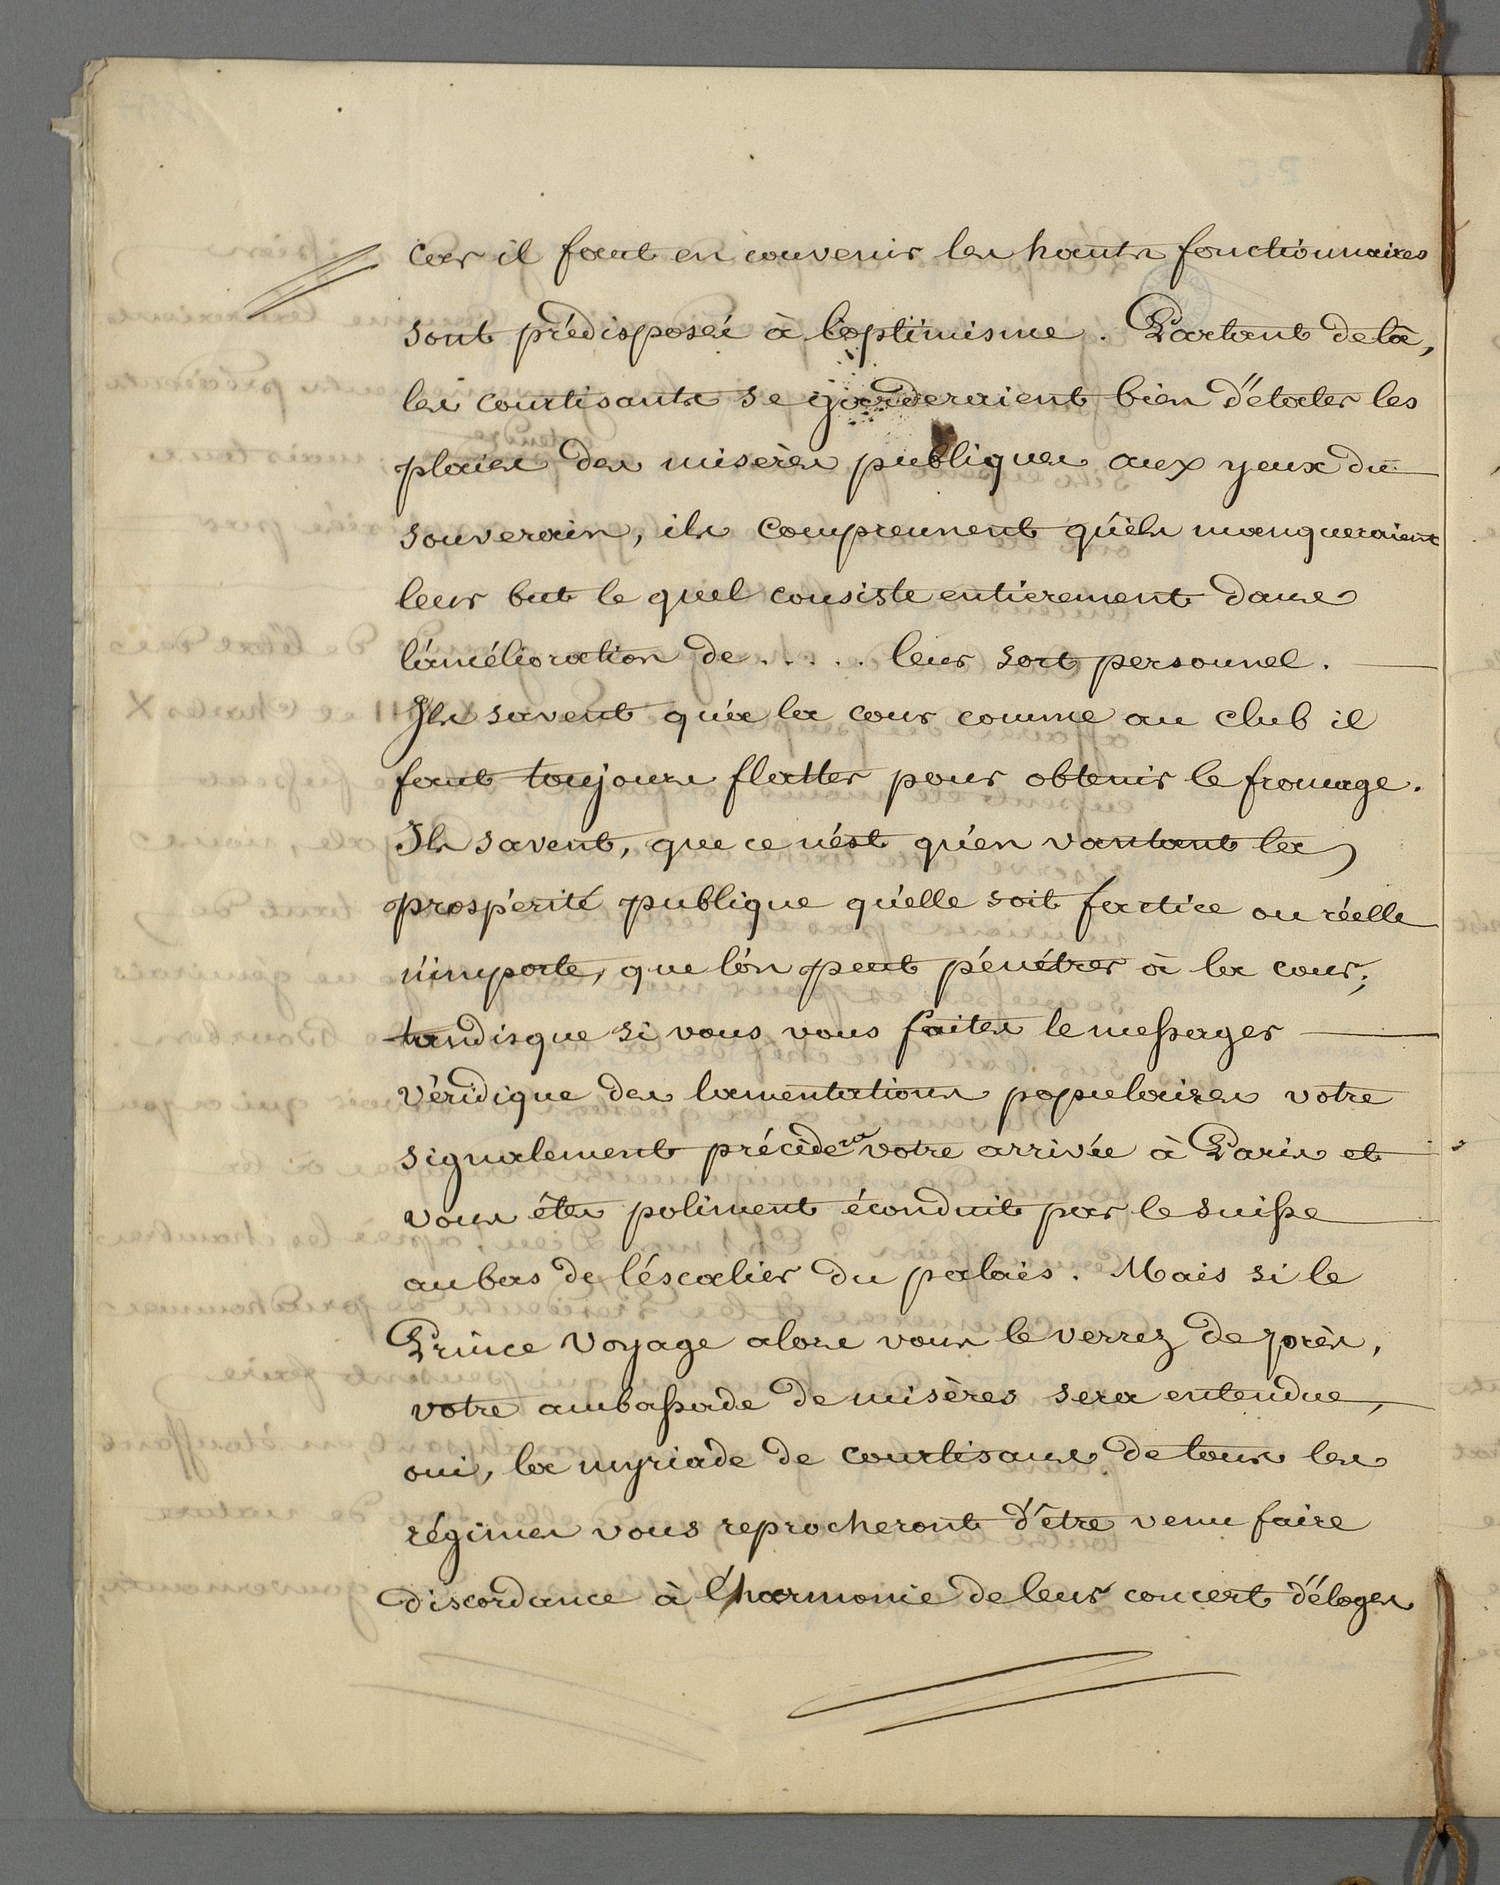 car il faut en convenir les hauts fonctionnaires
sont prédisposés à l'optimisme. Partant de là,
les courtisants se garderaient bien d'étaler les
plaies des misères publiques aux yeux du
souverain, ils comprennent qu'ils manqueraient
leur but le quel consiste entièrement dans
l'amélioration de ..... leur sort personnel.
Ils savent qu'à la cour comme au club il
faut toujours flatter pour obtenir le fromage.
Ils savent, que ce n'est qu'en vantant la
prospérité publique qu'elle soit factice ou réelle
n'importe, que l'on peut pénétrer à la cour;
tandisque si vous vous faites le messager
véridique des lamentations populaires votre
signalement précèdera votre arrivée à Paris et
vous êtes poliment éconduit par le suisse
au bas de l'éscalier du palais. Mais si le
Prince voyage alors vous le verrez de près,
votre ambassade de misères sera entendue,
oui, la myriade de courtisans de tous les
régimes vous reprocheront d'être venu faire
discordance à l'harmonie de leur concert d'éloges